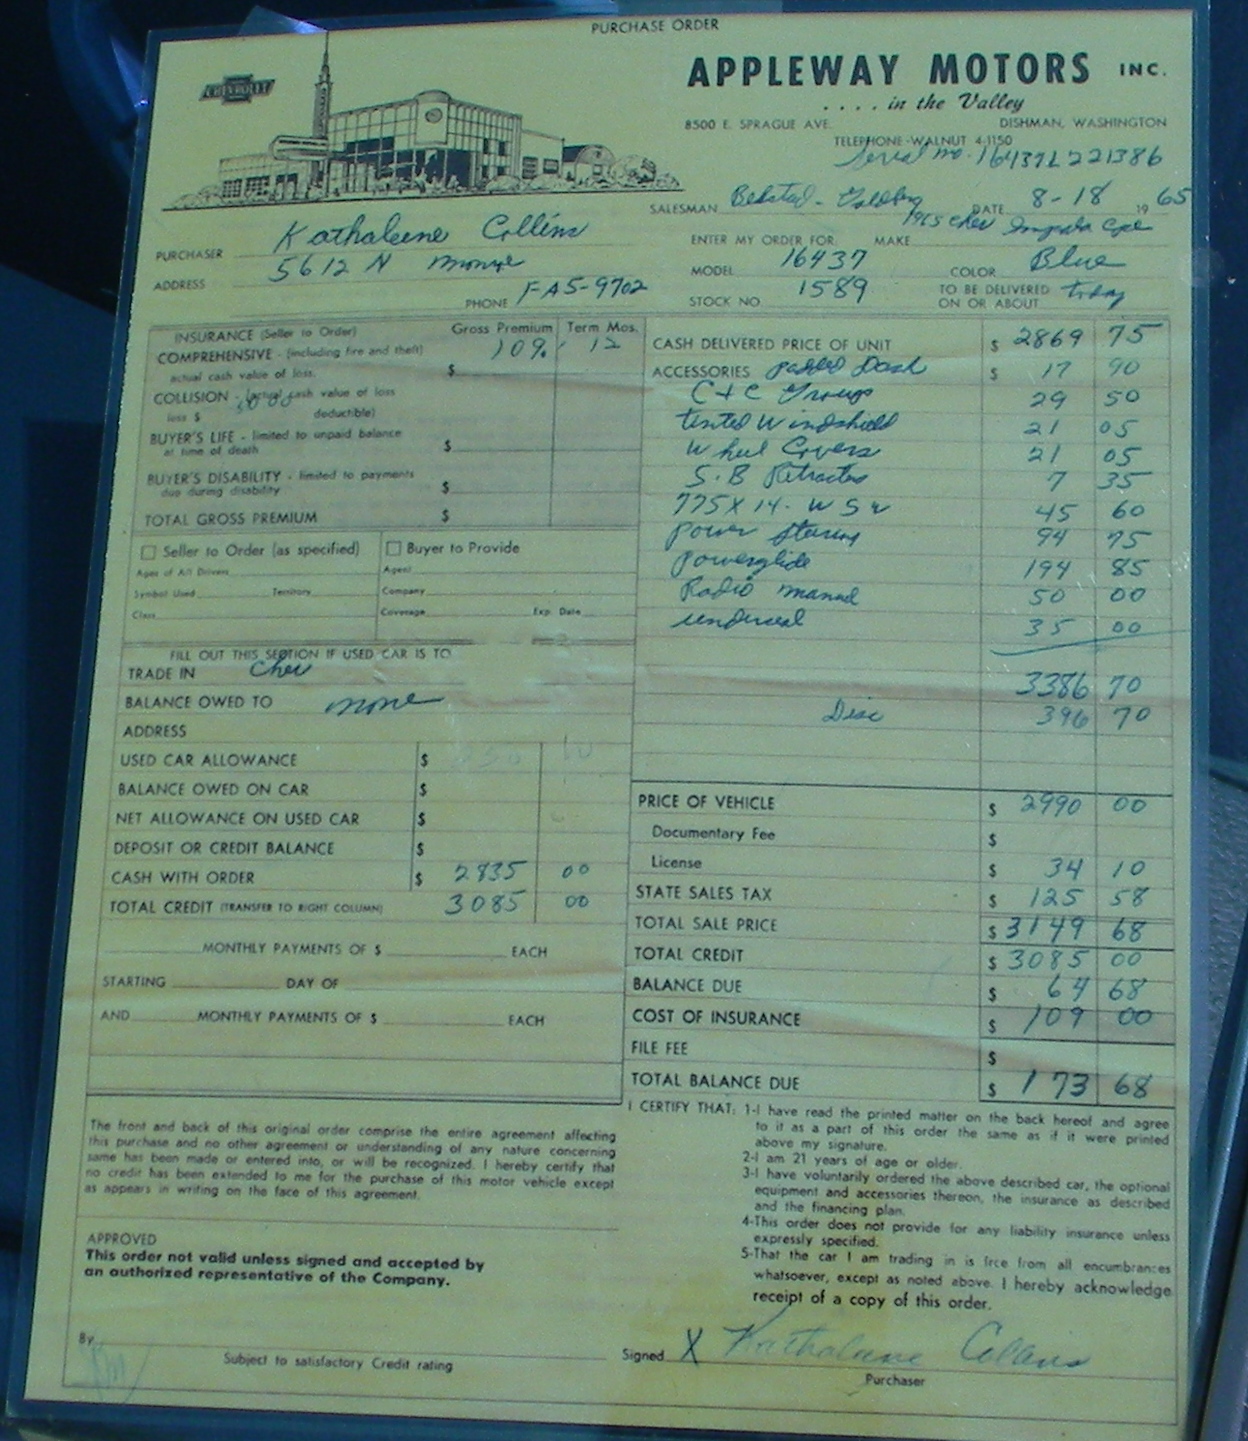 PURCHASE ORDER
CHEVROLET
APPLEWAY MOTORS INC.
.... in the Valley
8500 E. SPRAGUE AVE. DISHMAN, WASHINGTON
TELEPHONE-WALNUT 4-1150
Serial no. 16437L221386
SALESMAN DATE 8-18 1965
1965 Chev Impala Cpe
PURCHASER Kathaleene Collins
ENTER MY ORDER FOR MAKE
ADDRESS 5612 N
MODEL 16437 COLOR Blue
PHONE FA5-9702
STOCK NO. 1589 TO BE DELIVERED ON OR ABOUT today
INSURANCE (Seller to Order) Gross Premium Term Mos.
COMPREHENSIVE - (including fire and theft) 109. 12
actual cash value of loss. $
COLLISION - (actual cash value of loss
loss $ deductible)
BUYER'S LIFE - limited to unpaid balance
at time of death $
BUYER'S DISABILITY - limited to payments
due during disability $
TOTAL GROSS PREMIUM $
Seller to Order (as specified) Buyer to Provide
Ages of All Drivers Agent
Symbol Used Territory Company
Class Coverage Exp. Date
FILL OUT THIS SECTION IF USED CAR IS TO
TRADE IN Chev
BALANCE OWED TO none
ADDRESS
USED CAR ALLOWANCE $
BALANCE OWED ON CAR $
NET ALLOWANCE ON USED CAR $
DEPOSIT OR CREDIT BALANCE $
CASH WITH ORDER $ 2835 00
TOTAL CREDIT (TRANSFER TO RIGHT COLUMN) 3085 00
MONTHLY PAYMENTS OF $ EACH
STARTING DAY OF
AND MONTHLY PAYMENTS OF $ EACH
CASH DELIVERED PRICE OF UNIT $ 2869 75
ACCESSORIES padded Dash $ 17 90
C+C Groups 29 50
tinted Windshield 21 05
Wheel Covers 21 05
S.B Retractors 7 35
775X14. WSW 45 60
power steering 94 75
powerglide 194 85
Radio manual 50 00
underseal 35 00
3386 70
Disc 396 70
PRICE OF VEHICLE $ 2990 00
Documentary Fee $
License $ 34 10
STATE SALES TAX $ 125 58
TOTAL SALE PRICE $ 3149 68
TOTAL CREDIT $ 3085 00
BALANCE DUE $ 64 68
COST OF INSURANCE $ 109 00
FILE FEE $
TOTAL BALANCE DUE $ 173 68
The front and back of this original order comprise the entire agreement affecting
this purchase and no other agreement or understanding of any nature concerning
same has been made or entered into, or will be recognized. I hereby certify that
no credit has been extended to me for the purchase of this motor vehicle except
as appears in writing on the face of this agreement.
APPROVED
This order not valid unless signed and accepted by
an authorized representative of the Company.
By
Subject to satisfactory Credit rating
I CERTIFY THAT: 1-I have read the printed matter on the back hereof and agree
to it as a part of this order the same as if it were printed
above my signature.
2-I am 21 years of age or older.
3-I have voluntarily ordered the above described car, the optional
equipment and accessories thereon, the insurance as described
and the financing plan.
4-This order does not provide for any liability insurance unless
expressly specified.
5-That the car I am trading in is free from all encumbrances
whatsoever, except as noted above. I hereby acknowledge
receipt of a copy of this order.
Signed X Kathaleene Collins
Purchaser